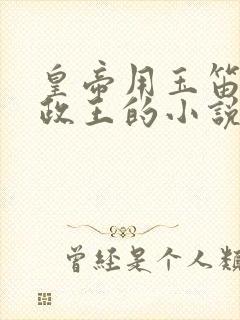 皇帝用玉笛
政王的小說
曾经是个人類